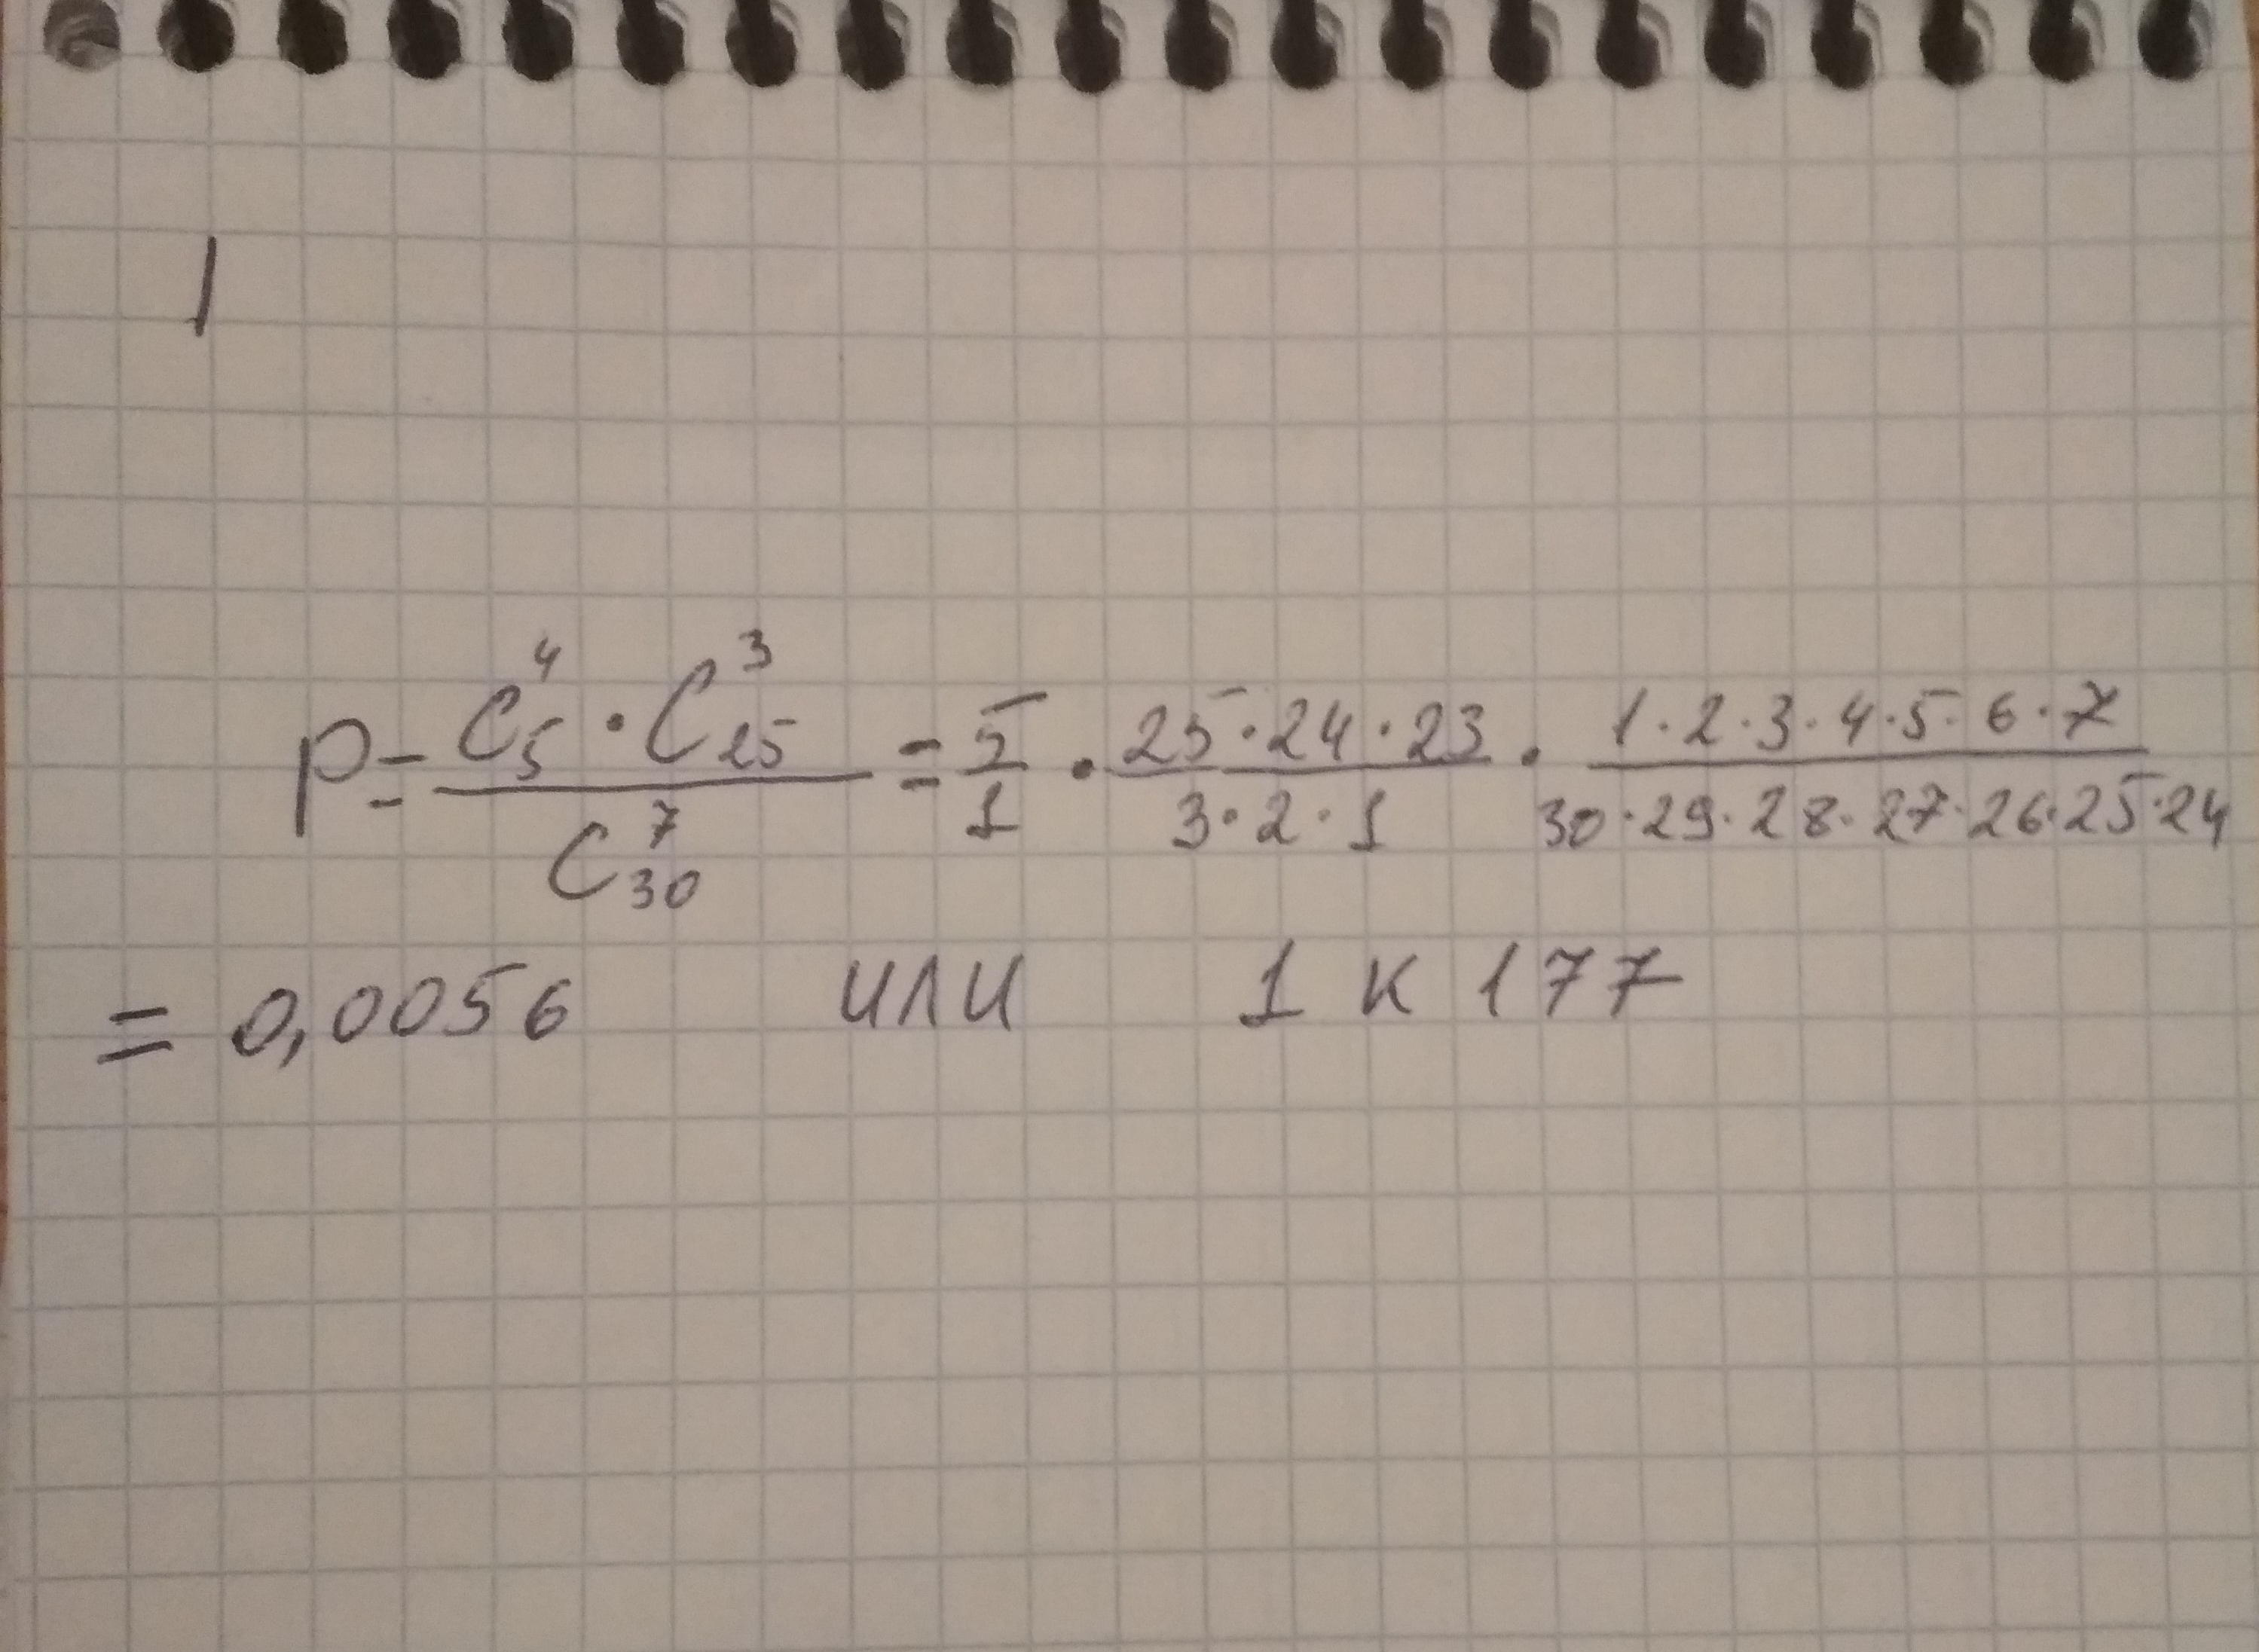 1
P = C₅⁴ · C₂₅³ / C₃₀⁷ = 5/1 · 25·24·23 / 3·2·1 · 1·2·3·4·5·6·7 / 30·29·28·27·26·25·24
= 0,0056 или 1 к 177